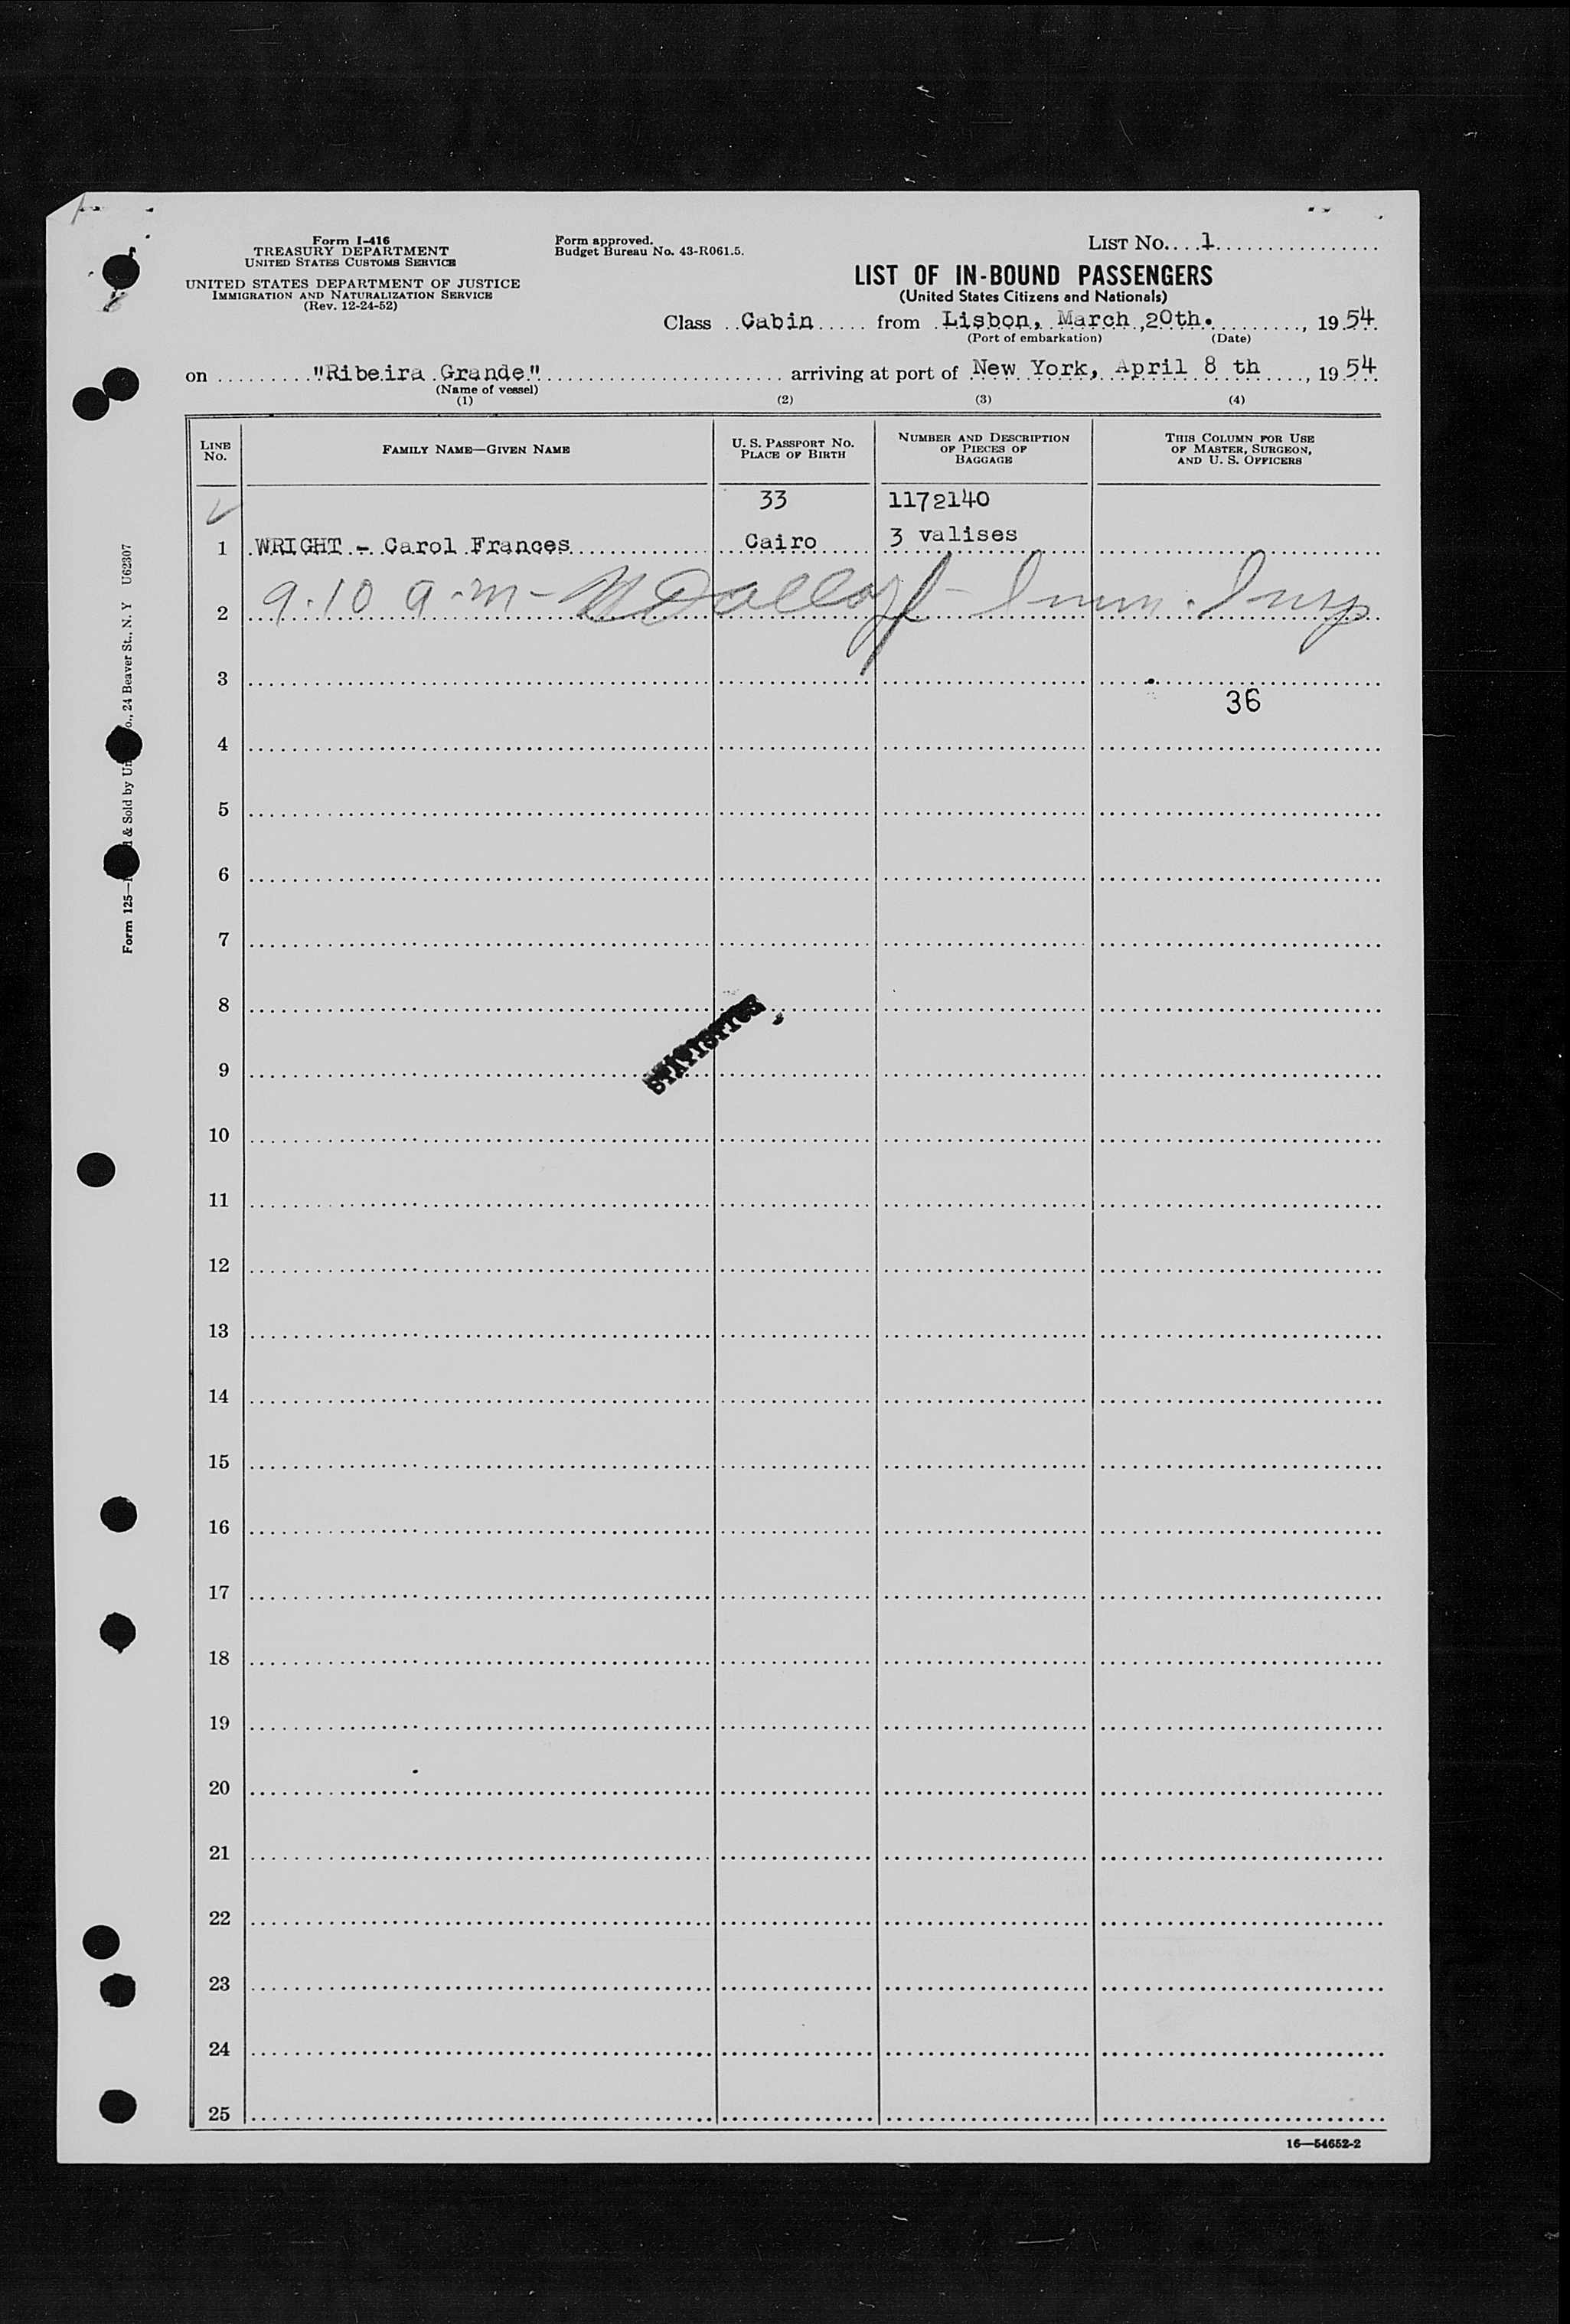 Form I-416
TREASURY DEPARTMENT
UNITED STATES CUSTOMS SERVICE
UNITED STATES DEPARTMENT OF JUSTICE
IMMIGRATION AND NATURALIZATION SERVICE
(Rev. 12-24-52)
Form approved.
Budget Bureau No. 43-R061.5.
LIST No. 1
LIST OF IN-BOUND PASSENGERS
(United States Citizens and Nationals)
Class Cabin from Lisbon, March, 20th., 1954
(Port of embarkation) (Date)
on "Ribeira Grande" arriving at port of New York, April 8 th, 1954
(Name of vessel)
(1) (2) (3) (4)
LINE No. FAMILY NAME—GIVEN NAME U. S. PASSPORT NO. PLACE OF BIRTH NUMBER AND DESCRIPTION OF PIECES OF BAGGAGE THIS COLUMN FOR USE OF MASTER, SURGEON, AND U. S. OFFICERS
33 1172140
1 WRIGHT - Carol Frances Cairo 3 valises
2 9.10 a.m - Imm. Insp
3
36
4
5
6
7
8
STATISTICS
9
10
11
12
13
14
15
16
17
18
19
20
21
22
23
24
25
16—54652-2
Form 125— & Sold by Un o., 24 Beaver St., N. Y U62307